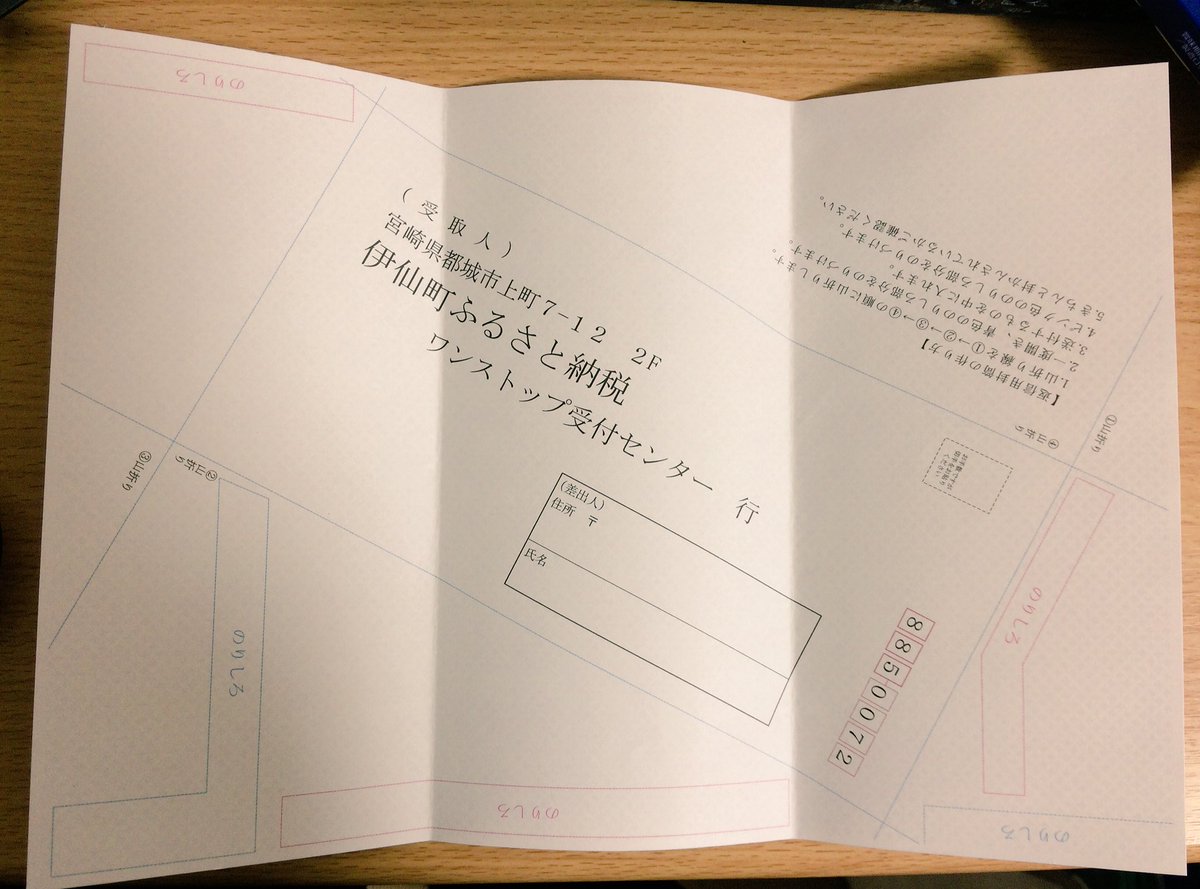 のりしろ
(受取人)
宮崎県都城市上町7-12 2F
伊仙町ふるさと納税
ワンストップ受付センター 行
(差出人)
住所 〒
氏名
8850072
お手数ですが
切手をお貼り
ください
【返信用封筒の作り方】
1.山折り線を①→②→③→④の順に山折りします
2.一度開き、青色ののりしろ部分をのりづけます。
3.送付するものを中に入れます。
4.ピンク色ののりしろ部分をのりづけます。
5.きちんと封かんされているかご確認ください。
①山折り
④山折り
③山折り
②山折り
のりしろ
のりしろ
のりしろ
のりしろ